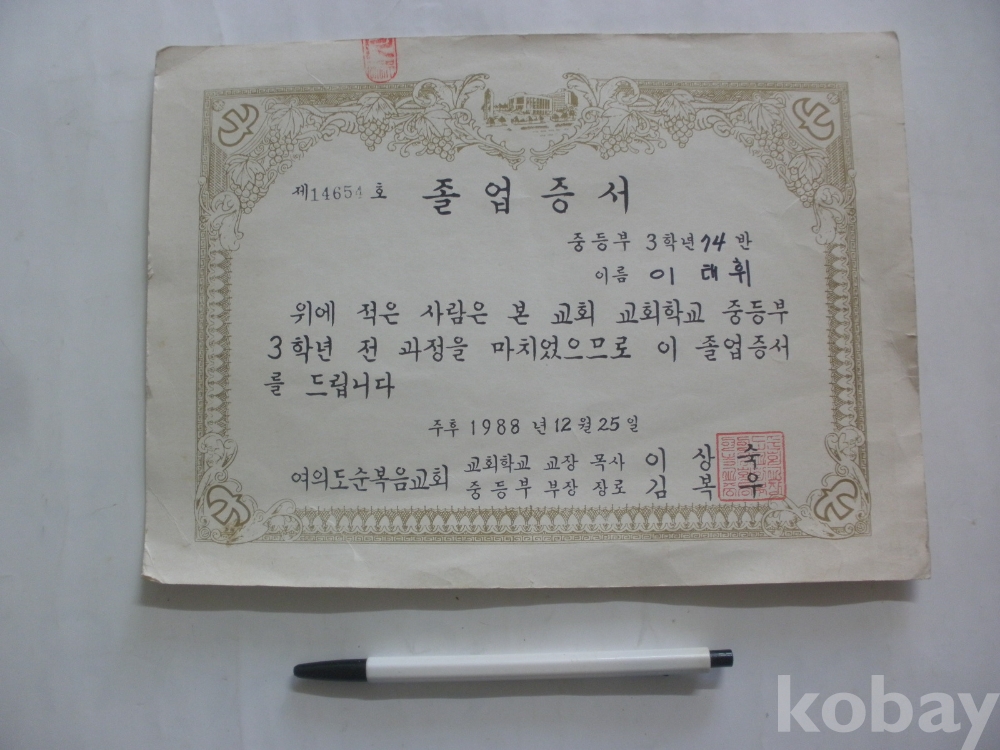 제14654호 졸업증서
중등부 3학년 14반
이름 이태휘
위에 적은 사람은 본 교회 교회학교 중등부
3학년 전 과정을 마치었으므로 이 졸업증서
를 드립니다
주후 1988년 12월 25일
여의도순복음교회 교회학교 교장 목사 이상숙
중등부 부장 장로 김복우
kobay